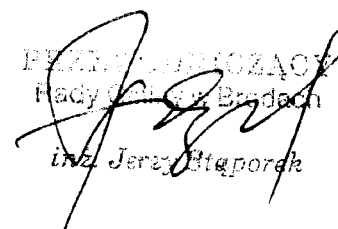 PRZEWODNICZĄCY
Rady Gminy w Brodach
inż. Jerzy Stąporek